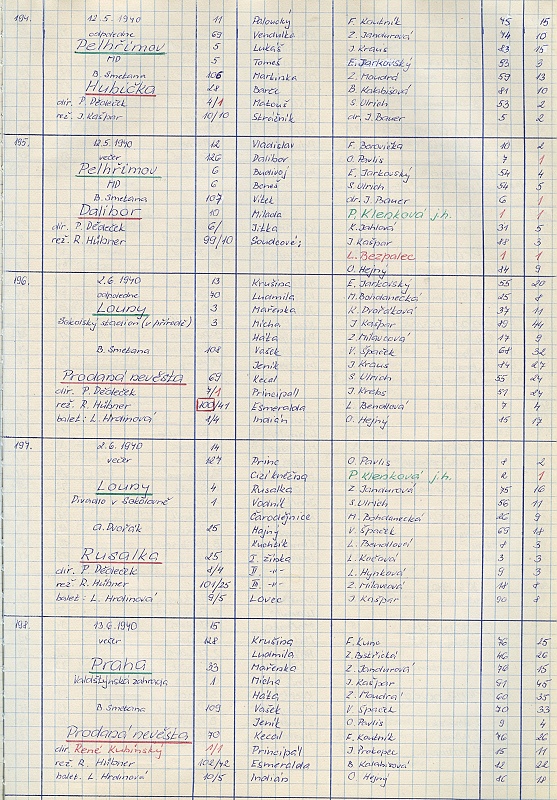 194. 12.5.1940 11 Paloucký F. Koutník 45 15
odpoledne 69 Vendulka Z. Jandurová 74 10
Pelhřimov 5 Lukáš J. Kraus 83 15
MD 5 Tomeš E. Jarkovský 53 3
B. Smetana 106 Martinka Z. Moudrá 59 13
Hubička 28 Barče B. Kalabisová 81 10
dir. P. Dědeček 4/1 Matouš S. Ulrich 53 2
rež. J. Kašpar 10/10 Strážník dr. J. Bauer 5 2
195. 12.5.1940 12 Vladislav F. Borovička 10 2
večer 126 Dalibor O. Pavlis 7 1
Pelhřimov 6 Budivoj E. Jarkovský 54 4
MD 6 Beneš S. Ulrich 54 5
B. Smetana 107 Vítek dr. J. Bauer 6 1
Dalibor 10 Milada P. Klenková j.h. 1 1
dir. P. Dědeček 6/ Jitka K. Jahlová 31 5
rež. R. Hübner 99/10 Soudcové: J. Kašpar 88 3
L. Bezpalec 1 1
O. Hejný 14 9
196. 2.6.1940 13 Krušina E. Jarkovský 55 20
odpoledne 70 Ludmila M. Bohdanecká 25 8
Louny 3 Mařenka K. Dvořáková 37 11
Sokolský stadion (v přírodě) 3 Mícha J. Kašpar 89 44
Háta Z. Milavcová 17 9
B. Smetana 108 Vašek V. Špaček 68 32
Jeník J. Kraus 84 27
Prodaná nevěsta 69 Kecal S. Ulrich 55 24
dir. P. Dědeček 7/1 Principál J. Krebs 51 24
rež. R. Hübner 100/41 Esmeralda L. Bendlová 7 4
balet: L. Hrdinová 1/4 Indián O. Hejný 15 17
197. 2.6.1940 14
večer 127 Princ O. Pavlis 8 2
Cizí kněžna P. Klenková j.h. 2 1
Louny 4 Rusalka Z. Jandurová 75 16
Divadlo v Sokolovně 1 Vodník S. Ulrich 56 11
Čarodějnice M. Bohdanecká 26 9
A. Dvořák 25 Hajný V. Špaček 69 18
Kuchtík L. Bendlová 8 3
Rusalka 25 I. žínka L. Kočová 3 3
dir. P. Dědeček 8/4 II. -"- L. Hynková 9 3
rež. R. Hübner 101/25 III. -"- Z. Milavcová 18 8
balet: L. Hrdinová 9/5 Lovec J. Kašpar 90 8
198. 13.6.1940 15
večer 128 Krušina F. Kunc 76 25
Ludmila Z. Bistřická 46 26
Praha 33 Mařenka Z. Jandurová 76 15
Valdštýnská zahrada 1 Mícha J. Kašpar 91 45
Háta Z. Moudrá 60 35
B Smetana 109 Vašek V Špaček 70 33
Jeník O. Pavlis 9 4
Prodaná nevěsta 70 Kecal F. Koutník 46 26
dir. René Kubínský 1/1 Principál J. Prokopec 15 11
rež. R. Hübner 102/42 Esmeralda B Kalabisová 82 22
balet. L Hrdinová 10/5 Indián O. Hejný 16 18